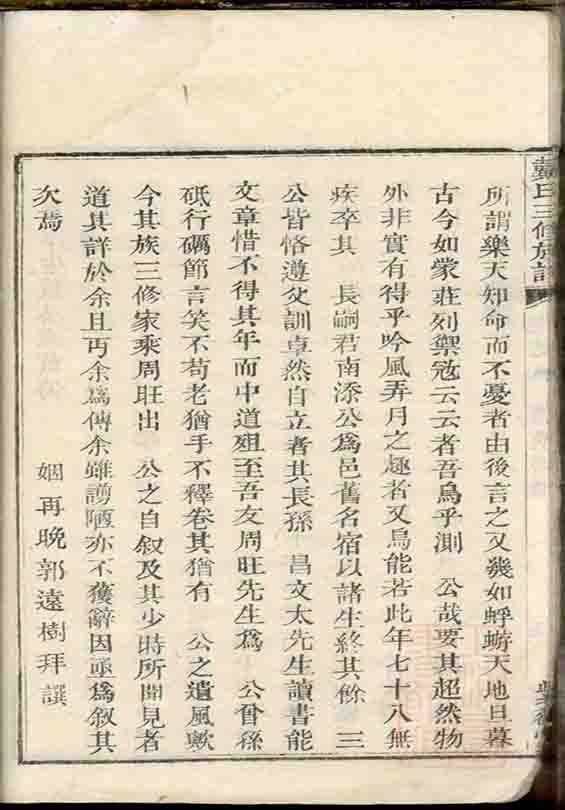 戴氏三修族譜
所謂樂天知命而不憂者由後言之又幾如蜉蝣天地旦暮
古今如蒙莊列禦寇云云者吾烏乎測 公哉要其超然物
外非實有得乎吟風弄月之趣者又烏能若此年七十八無
疾卒其 長嗣君南添公為邑舊名宿以諸生終其餘 三
公皆恪遵父訓卓然自立者其長孫 昌文太先生讀書能
文章惜不得其年而中道殂至吾友周旺先生為 公曾孫
砥行礪節言笑不苟老猶手不釋卷其猶有 公之遺風歟
今其族三修家乘周旺出 公之自叙及其少時所聞見者
道其詳於余且丐余為傳余雖謭陋亦不獲辭因亟為叙其
次焉
姻再晚郭遠樹拜譔